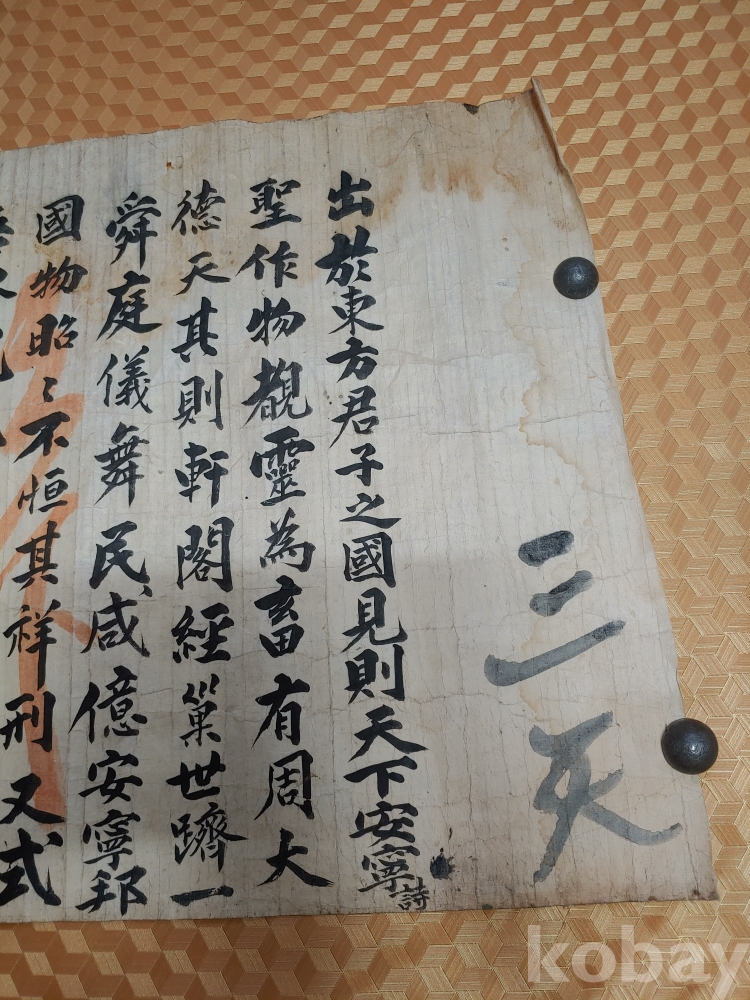 三天
出於東方君子之國見則天下安寧詩
聖作物覩靈為畜有周大
德天其則軒閣經巢世躋一
舜庭儀舞民咸億安寧邦
國物昭〻不恒其祥刑又式
kobay